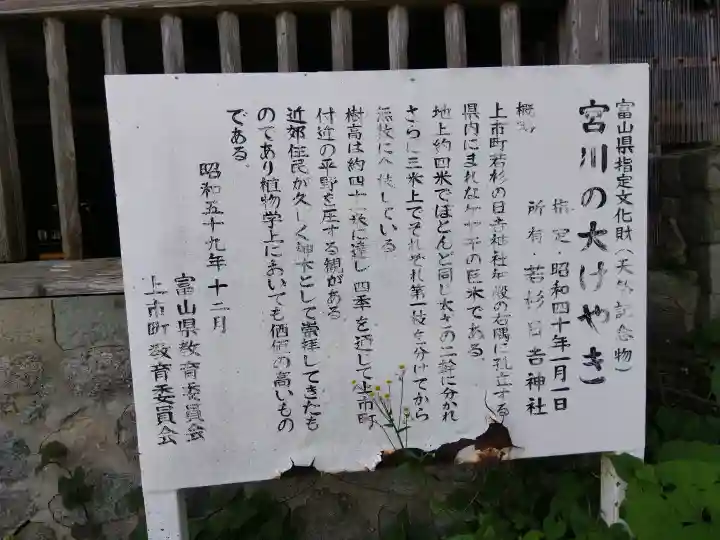 富山県指定文化財(天然記念物)
宮川の大けやき
指定・昭和四十年一月一日
所有・若杉日吉神社
概
上市町若杉の日吉神社 殿の右隅に孔立する
県内にまれなケヤキの巨米である。
地上約四米でほとんど同じ太さの二幹に分かれ
さらに三米上でそれぞれ第一枝を分けてから
無数に 枝している
樹高は約四十 に達し四季を通して上市町
付近の平野を圧する観がある
近郊住民が久しく神木として崇拝してきたも
のであり植物学上においても価値の高いもの
である。
昭和五十九年十二月
富山県教育委員会
上市町教育委員会